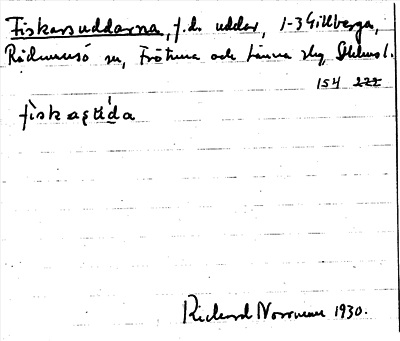 Fiskarsuddarna, f.d. uddar, 1-3 Gillberga,
Rådmansö sn, Frötuna och Länna slg Sthlms l.
154 222
fiskaṣúda
Richard Norrman 1930.